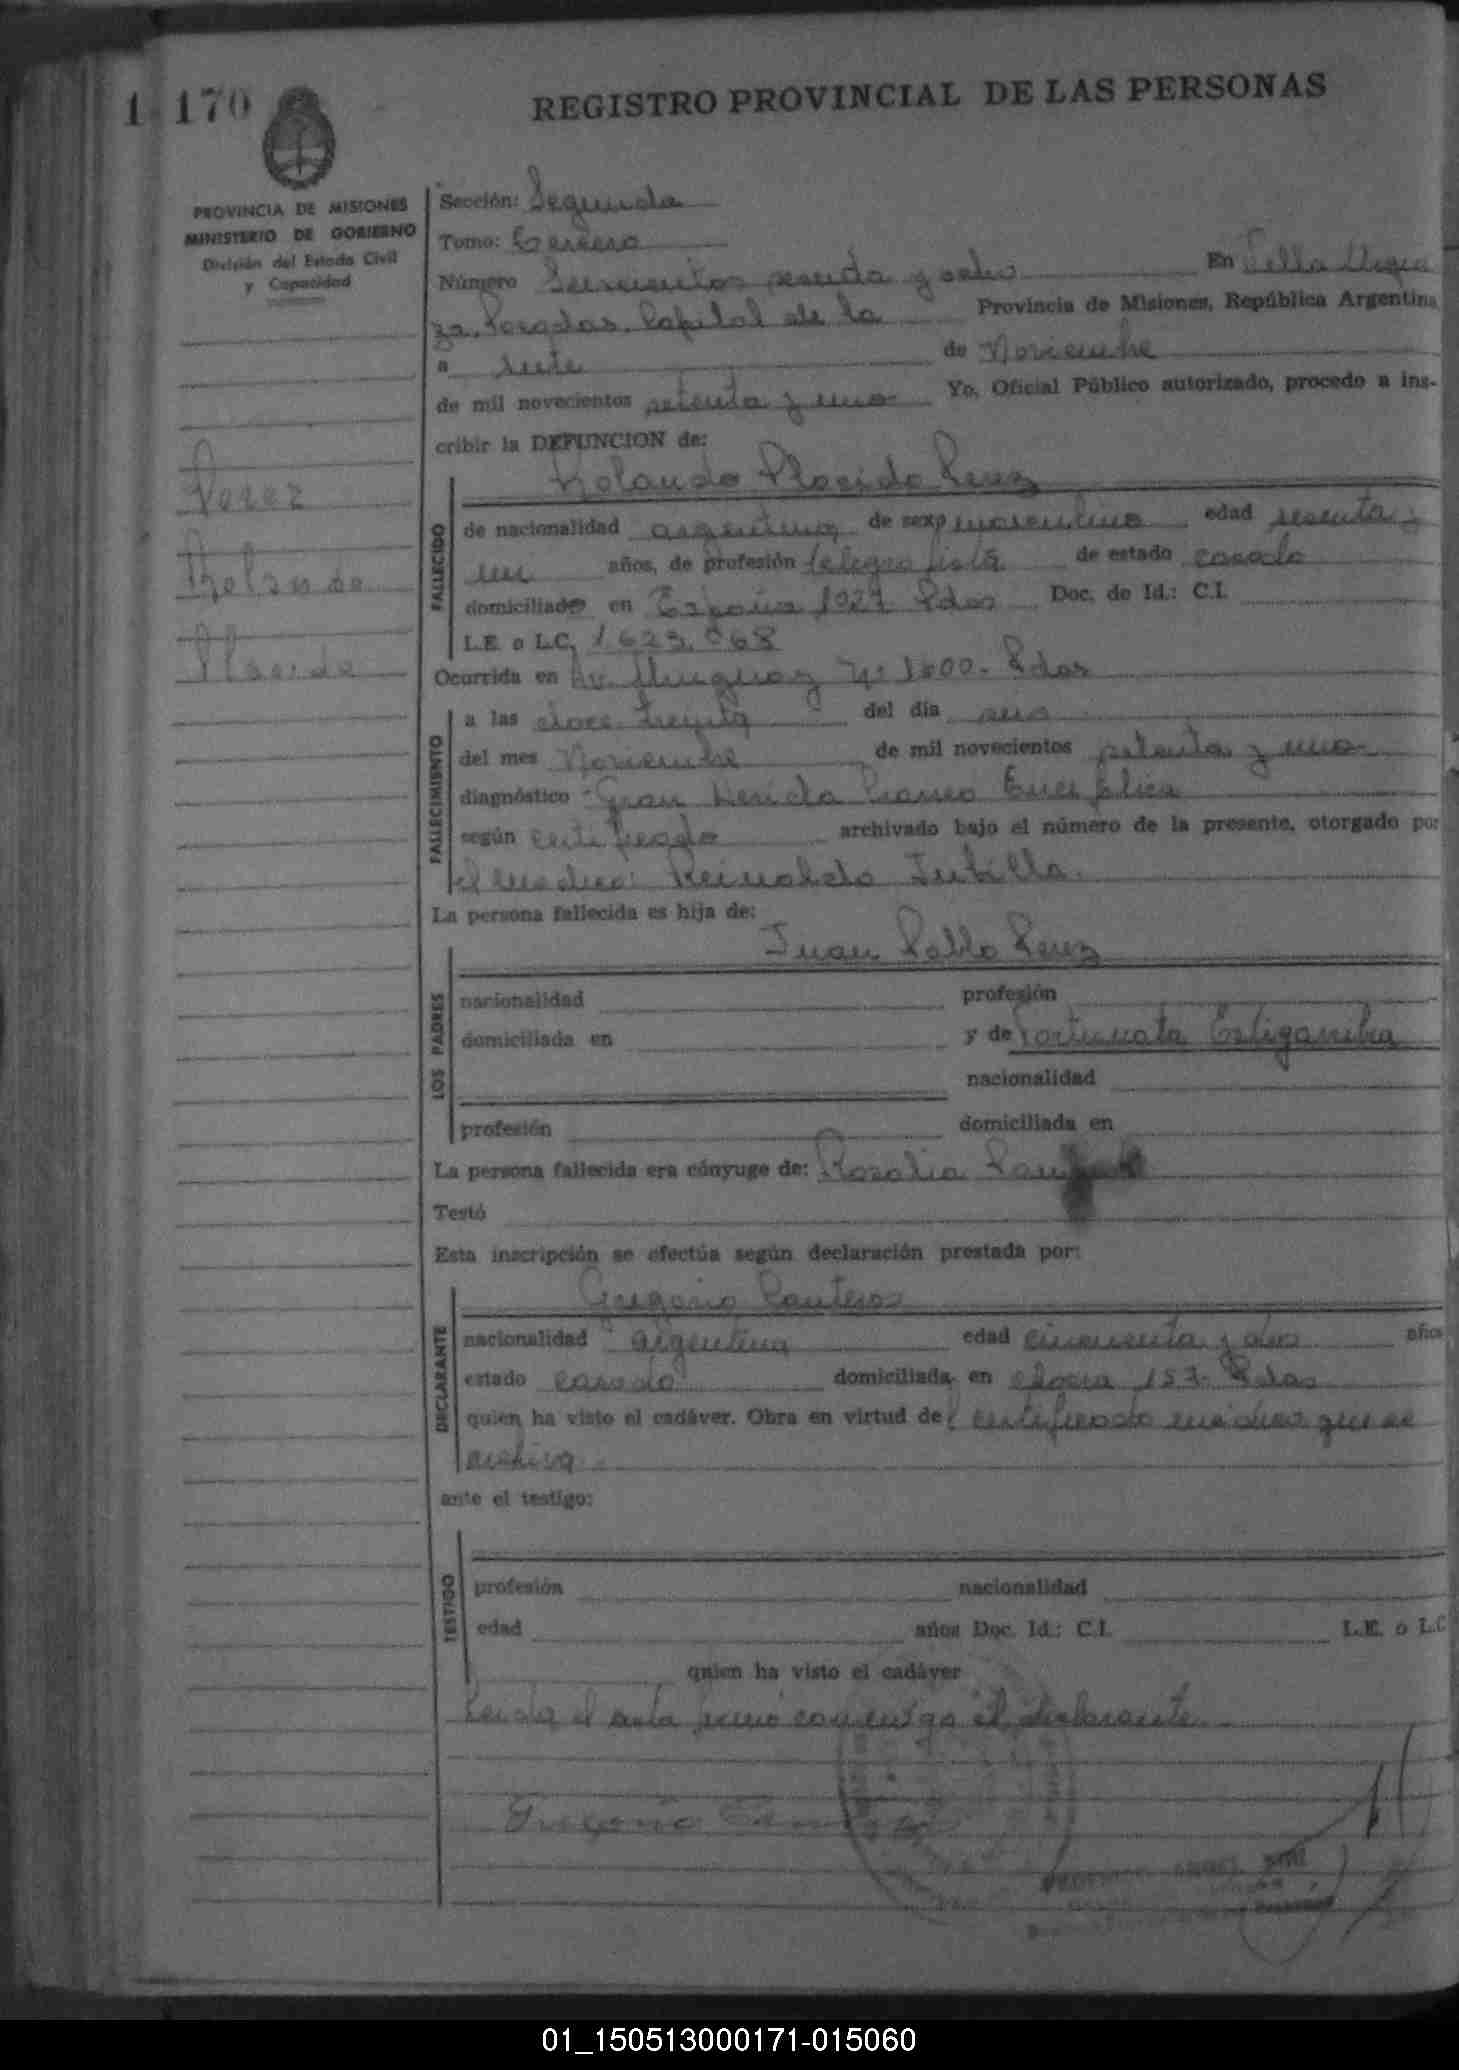 1 170
REGISTRO PROVINCIAL DE LAS PERSONAS
PROVINCIA DE MISIONES
MINISTERIO DE GOBIERNO
División del Estado Civil
y Capacidad
Perez
Rolando
Placido
Sección: Segunda
Tomo: Tercero
Número sesenta y ocho En Villa Urqui
za, Posadas, Capital de la Provincia de Misiones, República Argentina
a siete de Noviembre
de mil novecientos setenta y uno Yo, Oficial Público autorizado, procedo a ins-
cribir la DEFUNCION de:
Rolando Placido Perez
FALLECIDO
de nacionalidad argentina de sexo masculino edad sesenta y
un años, de profesión telegrafista de estado casado
domiciliado en España 1927 Pdas Doc. de Id.: C.I.
L.E. o L.C. 1.623.068
Ocurrida en Av. Uruguay Nº Pdas
FALLECIMIENTO
a las doce treinta del día seis
del mes Noviembre de mil novecientos setenta y uno
diagnóstico Gran Herida Craneo Encefalica
según certificado archivado bajo el número de la presente, otorgado por
el medico: Reinaldo
La persona fallecida es hija de:
Juan Pablo Perez
LOS PADRES
nacionalidad profesión
domiciliada en y de Fortunata Estigarribia
nacionalidad
profesión domiciliada en
La persona fallecida era cónyuge de: Rosalia
Testó
Esta inscripción se efectúa según declaración prestada por:
Gregorio Canteros
DECLARANTE
nacionalidad argentina edad cincuenta y dos años
estado casado domiciliada en 157 Pdas
quien ha visto el cadáver. Obra en virtud del certificado medico que se
archiva
ante el testigo:
TESTIGO
profesión nacionalidad
edad años Doc. Id.: C.I. L.E. o L.C
quien ha visto el cadáver
Leida el acta firmó conmigo el declarante
Gregorio
01_150513000171-015060